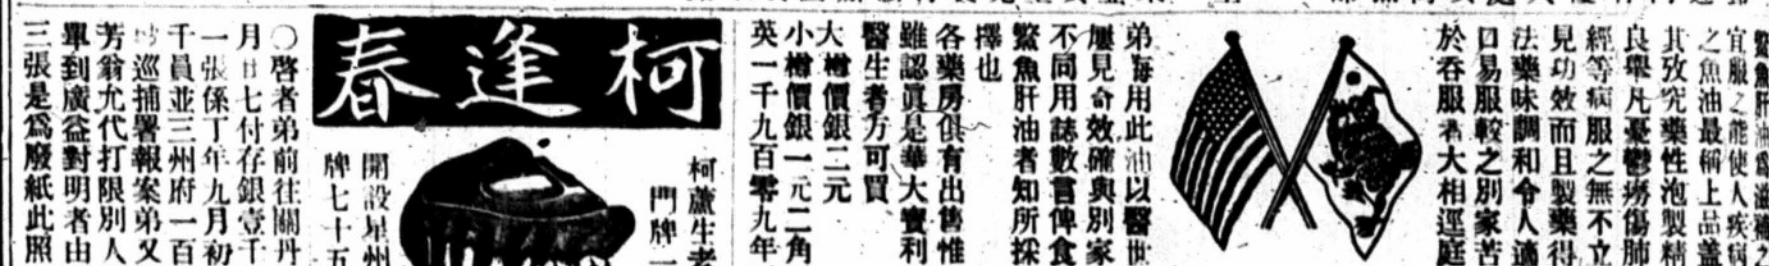 鱉魚肝油爲滋補之
宜服之能使人疾病
之魚油最稱上品蓋
其攷究藥性泡製精
良舉凡憂鬱癆傷肺
經等病服之無不立
見功效而且製藥得
法藥味調和令人適
口易服較之別家苦
於吞服者大相逕庭
弟每用此油以醫世
屢見奇效確與別家
不同用誌數言俾食
鱉魚肝油者知所採
擇也
各藥房俱有出售惟
雖認眞是華大寶利
醫生者方可買
大樽價銀二元
小樽價銀一元二角
英一千九百零九年
柯逢春
柯蘆生者
門牌一
開設星州
牌七十五
〇啓者弟前往關丹
月廿七付存銀壹千
一張係丁年九月初
千員並三州府一百
巡捕署報案弟又
芳翁允代打限別人
單到廣益對明者由
三張是爲廢紙此照